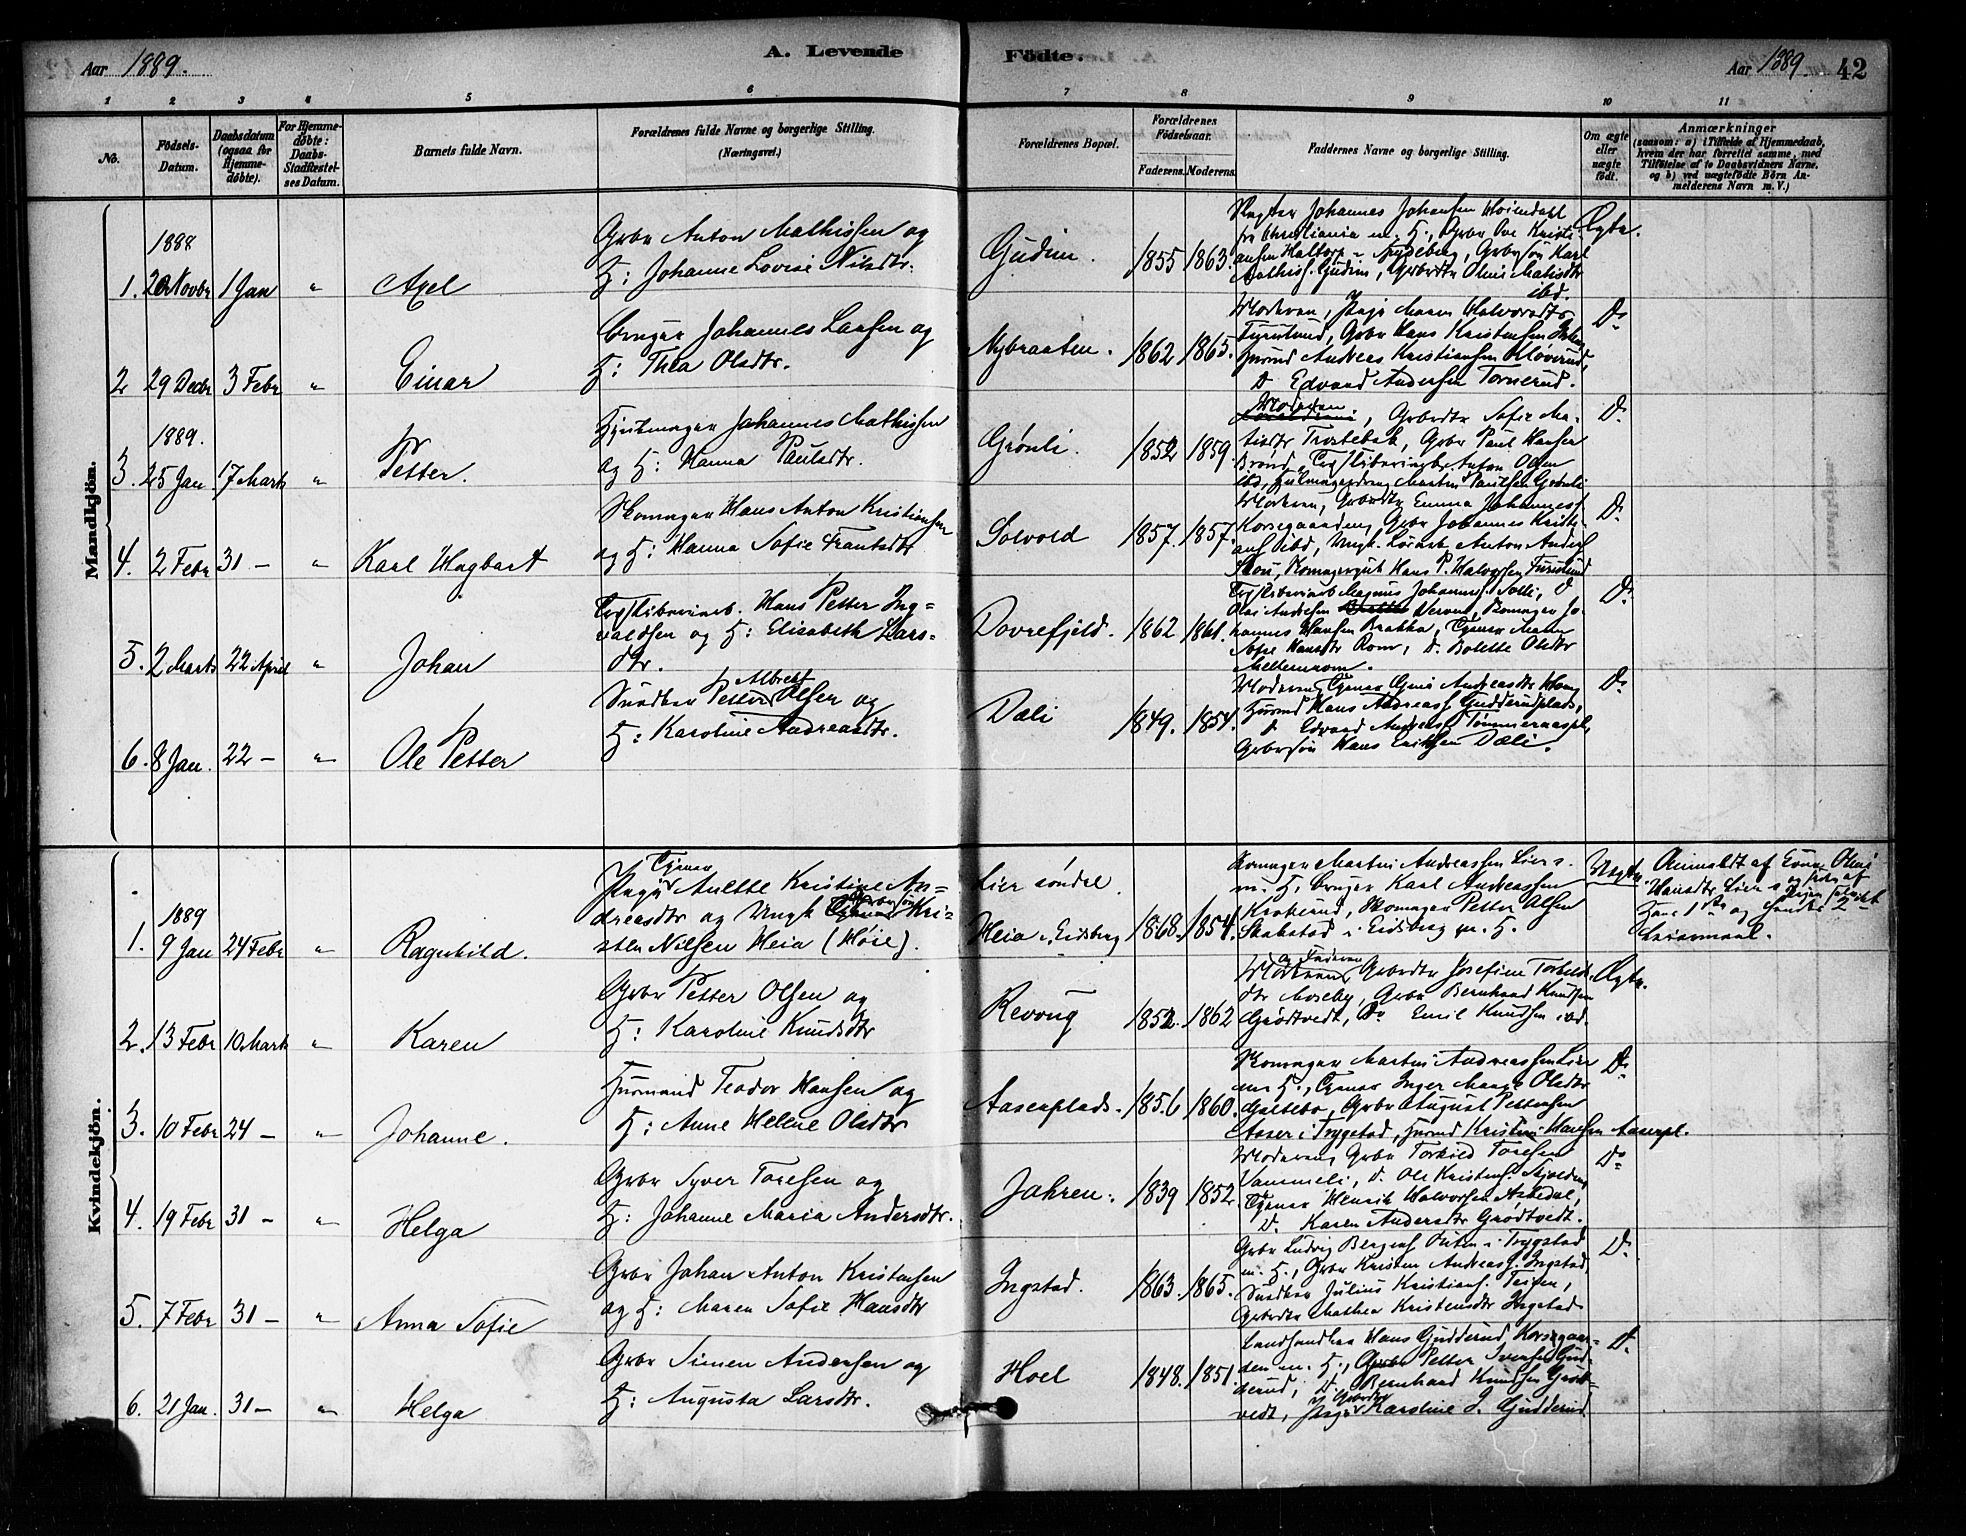 Aar 1889.
A. Levende
Fødte.
Aar 1889. 42
1 2 3 4 5 6 7 8 9 10 11
No.
Fødsels-
Datum.
Daabsdatum
(ogsaa for
Hjemme-
døbte).
For Hjemme-
døbte:
Daabs-
Stadfæstel-
ses Datum.
Barnets fulde Navn.
Forældrenes fulde Navne og borgerlige Stilling.
(Næringsvei.)
Forældrenes Bopæl.
Forældrenes
Fødselsaar.
Faderens. Moderens.
Faddernes Navne og borgerlige Stilling.
Om ægte
eller
uægte
født.
Anmærkninger
(saasom: a) i Tilfælde af Hjemmedaab,
hvem der har forrettet samme, med
Tilføielse af to Daabsvidners Navne,
og b) ved uægtefødte Børn An-
melderens Navn m. V.)
Mandkjön.
1888
1. Novbr 1 Jan " Axel
Grbr Anton Mathissen og
H: Johanne Lovise Nilsdtr.
Gudim. 1855 1863.
Johannes Johansen
fra Christiania m. H., Grbr Ove Kristi-
ansen Haltorp i Spydeberg, Grbrsøn Karl
Mathiss. Gudim, Grbrdtr Oline Mathisdtr
ibd.
Ægte.
2 29 Decbr 3 Febr " Einar
Bruger Johannes Larsen og
H: Thea Olsdtr.
Nybraaten. 1862 1865.
Moderen, Pige Maren Halvorsdtr
Furulund, Grbr Hans Kristensen
Husmd Andreas Kristiansen Kløverud,
D. Edvard Andersen Tornerud.
Do
1889.
3. 25 Jan 17 Marts " Petter.
Hjulmager Johannes Mathissen
og H: Hanna Paulsdtr.
Grønli. 1852 1859.
Moderen, Grbrdtr Sofie Ma-
tisdtr Trostebæk, Grbr Paul Hansen
Brønd, Teglverkarb. Anton Olsen
ibd, Hjulmagerdreng Martin Paulsen Grønli
Do
4. 2 Febr 31 - " Karl Hagbart
Skomager Hans Anton Kristiansen
og H: Hanna Sofie Frantsdtr
Solvold 1857. 1857.
Moderen, Grbrdtr Emma Johanness
Korsegaarden, Grbr Johannes Kristi-
ans ibd, Ungk. Anton Anders
Skou, Skomagergut Hans P. Halvorsen Furulund
Do
5. 2 Marts 22 April " Johan
Hans Petter Ing-
valdsen og H: Elisabeth Lars-
dtr.
Dovrefjeld. 1862 1861.
Magnus Johannes. Solli,
Olai Andersen Nerven, Skomager Jo-
hannes Hansen Brakka, Tjener Maren
Sofie Hansdtr Rom, D. Bolette Olsdtr
Mellemrom.
Do
6. 8 Jan. 22 - " Ole Petter
Snedker Petter Albrekt Olsen og
H: Karoline Andreasdtr.
Dæli 1849. 1854.
Moderen, Tjener Andreasdtr
Husmd Hans Andreass Gudderudplads,
D Edvard Andreass Tømmeraaspl,
Grbrsøn Hans Eriksen Dæli.
Do
Kvindekjön.
1889
1. 9 Jan 24 Febr " Ragnhild.
Tjener
Pige Anette Kristine An-
dreasdtr og Ungk Grbrsøn Kri-
sten Nilsen Heia (Høie).
Lier søndre.
Heia i Eidsberg 1868. 1854.
Skomager Martin Andreassen Lier s.
m. H. Bruger Karl Andreassen
Krokerud, Skomager Petter Olsen
Skakstad i Eidsberg m. H.
Uægte.
Anmeldt af Enke Oline
Hansdtr Lier s og
Hans 1ste og hendes 2det
Leiermaal.
2. 13 Febr 10 Marts " Karen
Grbr Petter Olsen og
H: Karoline Knudsdtr
Revoug 1852. 1862
Moderen og Faderen, Grbrdtr Josefine Torkilds-
dtr Moseby, Grbr Bernhard Knudsen
Grødtvedt, Do Emil Knudsen ibd.
Ægte.
3. 10 Febr 24 - " Johanne.
Husmand Teodor Hansen og
H: Anne Helene Olsdtr
Aasenplads. 1856 1860.
Skomager Martin Andreassen Lier
m. H., Tjener Inger Mange Olsdtr
Galtebo, Grbr August Pettersen
Aaser i Trygstad, Husmd Kristian Hansen Aasenpl.
Do
4. 19 Febr 31 - " Helga
Grbr Syver Toresen og
H: Johanne Maria Andersdtr.
Jahren. 1839 1852.
Moderen, Grbr Torkild Toresen
Vammeli, D. Ole Kristens. Mjolden,
Tjener Henrik Halvorsen Askedal,
D. Karen Andersdtr Grødtvedt.
Do
5. 7 Febr 31 - " Anna Sofie
Grbr Johan Anton Kristensen
og H: Maren Sofie Hansdtr
Ingstad. 1863. 1865.
Grbr Ludvig Bergers i Trygstad
m. H., Grbr Kristen Andreass. Ingstad,
Snedker Julius Kristians. Teigen,
Grbrdtr Mathea Kristensdtr Ingstad
Do
6. 21 Jan. 31 - " Helga
Grbr Simen Andersen og
H: Augusta Larsdtr.
Hoel 1848. 1851.
Landhandler Hans Gudderud, Korsegaar-
den m. H., Grbr Petter Iversen Gud-
derud, D. Bernhard Knudsen Grødt-
vedt, Pige Grbrdtr Karoline J. Gudderud
Do